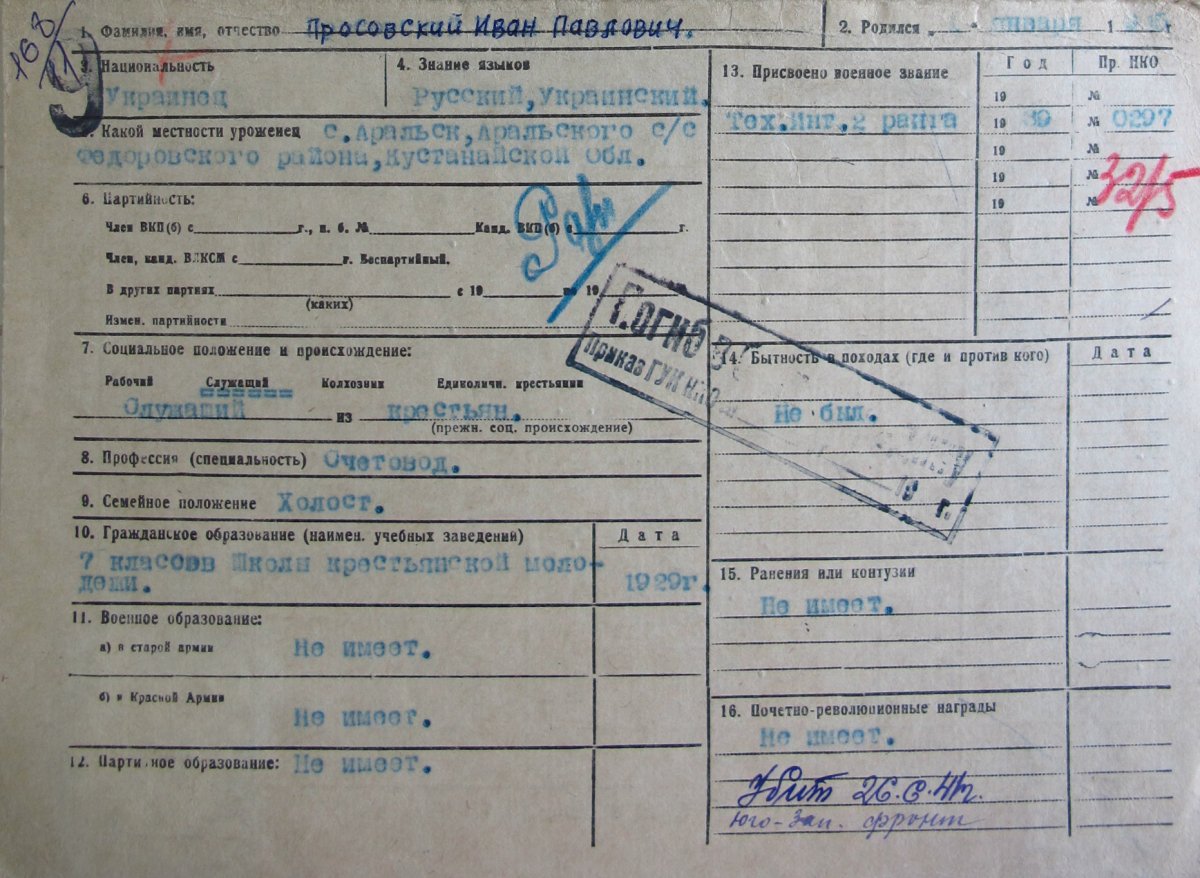 168/
1. Фамилия, имя, отчество Просовский Иван Павлович.
2. Родился „1" января 1 г.
3. Национальность
Украинец
4. Знание языков
Русский, Украинский.
Какой местности уроженец с. Аральск, Аральского с/с
Федоровского района, Кустанайской Обл.
6. Партийность:
Член ВКП(б) с г., п. б. № Канд. ВКП(б) с г.
Член, канд. ВЛКСМ с г. Беспартийный.
В других партиях с 19 по 19
(каких)
Измен. партийности
7. Социальное положение и происхождение:
Рабочий Служащий Колхозник Единоличн. крестьянин
Служащий из крестьян.
(прежн. соц. происхождение)
8. Профессия (специальность) Счетовод.
9. Семейное положение Холост.
10. Гражданское образование (наимен. учебных заведений)
Дата
7 классов Школы крестьянской моло-
дежи.
1929г.
11. Военное образование:
а) в старой армии Не имеет.
б) в Красной Армии
Не имеет.
12. Парти.ное образование: Не имеет.
13. Присвоено военное звание
Год
Пр. НКО
19 №
Тех. Инт. 2 ранга 19 39 № 0297
19 №
19 №
32/5
19 №
ПОГИБ В
Приказ ГУК НКО
19 г.
14. Бытность в походах (где и против кого)
Дата
Не был.
15. Ранения или контузии
Не имеет.
16. Почетно-революционные награды
Не имеет.
Убит 26.6.41г.
Юго-Зап. фронт